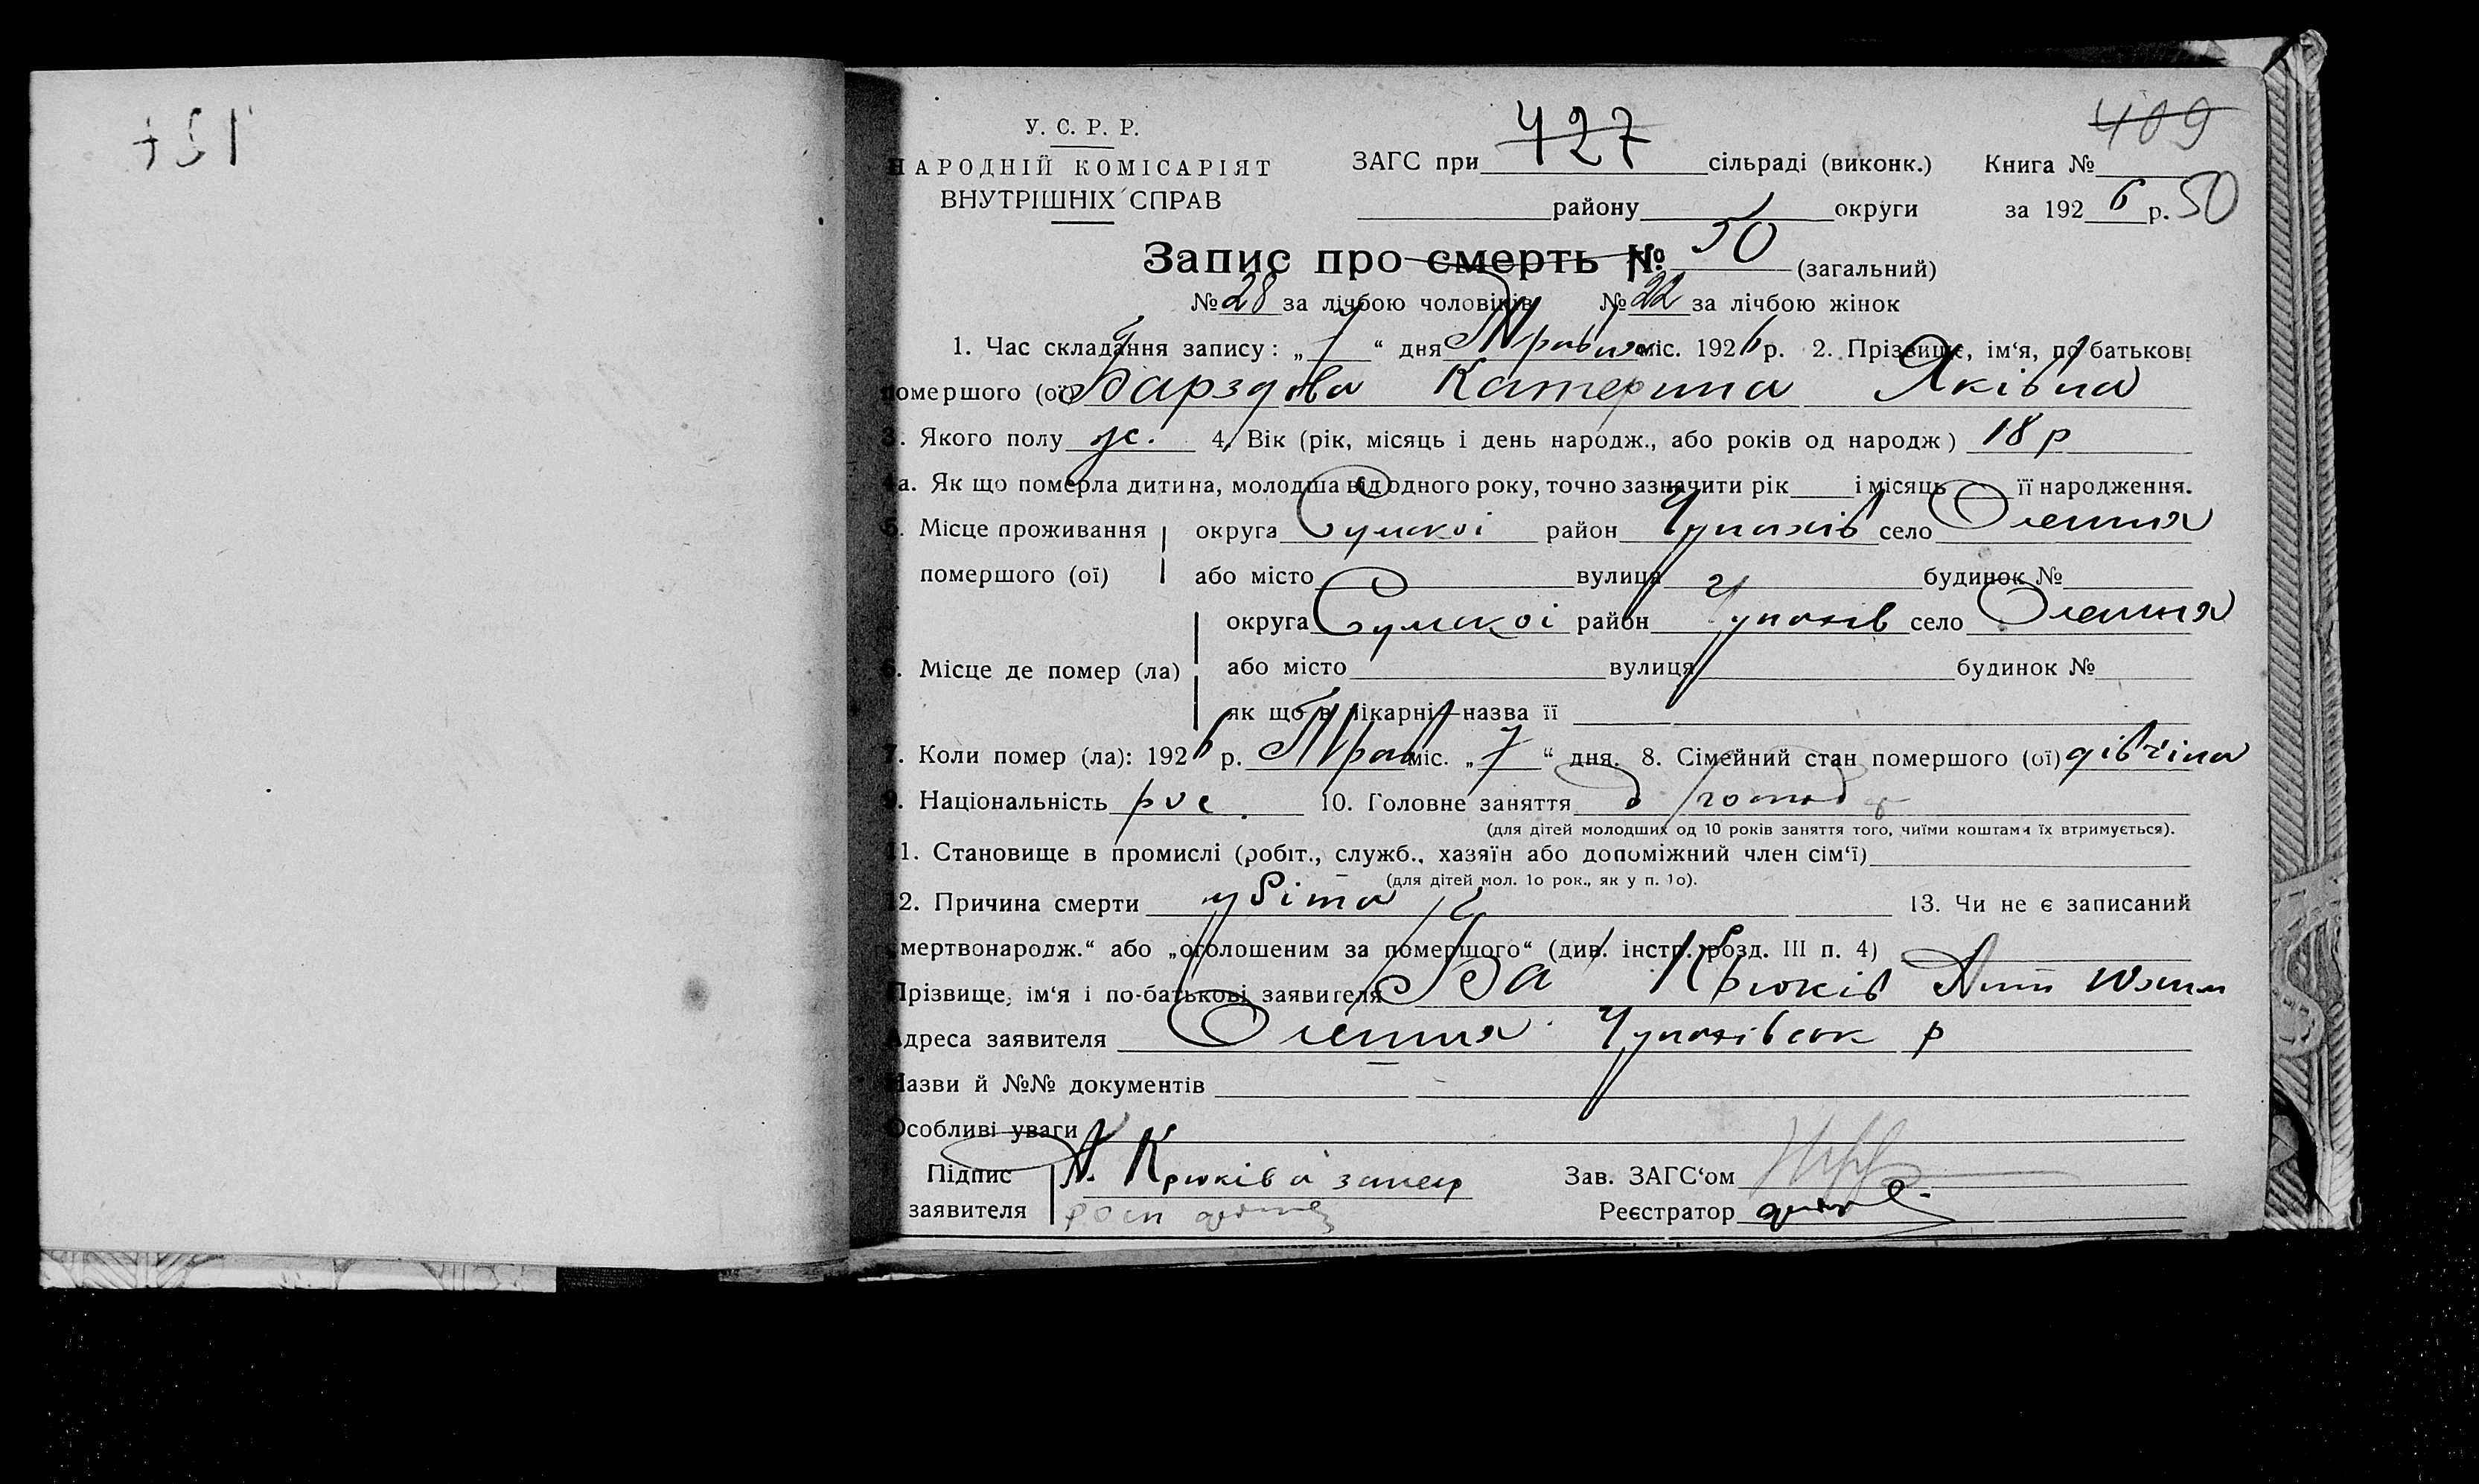 У. С. Р. Р.
НАРОДНІЙ КОМІСАРІЯТ
ВНУТРІШНІХ СПРАВ
ЗАГС при 427 сільраді (виконк.) Книга № 409
району округи за 1926 р. 50
Запис про смерть № 50 (загальний)
№ 28 за лічбою чоловіків № 22 за лічбою жінок
1. Час складання запису: „ 7 “ дня Травня міс. 1926 р. 2. Прізвище, ім‘я, по батькові
помершого (ої) Катерина Яківна
3. Якого полу ж. 4. Вік (рік, місяць і день народж., або років од народж) 18 р
4а. Як що померла дитина, молодша від одного року, точно зазначити рік і місяць її народження.
5. Місце проживання округа Сумскоі район Чупахів село Олешня
помершого (ої) або місто вулиця будинок №
округа Сумскоі район Чупахів село Олешня
6. Місце де помер (ла) або місто вулиця будинок №
як що в лікарні—назва її
7. Коли помер (ла): 1926 р. Трав міс. „ 7 “ дня. 8. Сімейний стан помершого (ої) дівчіна
9. Національність рус. 10. Головне заняття
(для дітей молодших од 10 років заняття того, чиїми коштами їх втримується).
11. Становище в промислі (робіт., служб., хазяїн або допоміжний член сім‘ї)
(для дітей мол. 1о рок., як у п. 1о).
12. Причина смерти убіта 13. Чи не є записаний
„мертвонародж.“ або „оголошеним за помершого“ (див. інстр. розд. III п. 4)
Прізвище, ім‘я і по-батькові заявителя Крюків
Адреса заявителя Олешня Чупахівськ р
Назви й №№ документів
Особливі уваги
Підпис А. Крюків а Зав. ЗАГС‘ом
заявителя Реєстратор